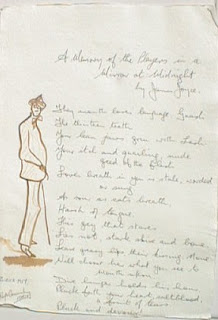 A Memory of the Players in a
Mirror at Midnight
by James Joyce.
They mouth love's language. Gnash
The thirteen teeth
Your lean jaws grin with. Lash
Your itch and quailing, nude
greed of the flesh.
Love's breath in you is stale, worded
or sung,
As sour as cat's breath,
Harsh of tongue.
This grey that stares
Lies not, stark skin and bone.
Leave greasy lips their kissing. None
Will choose her what you see to
mouth upon.
Dire hunger holds his hour.
Pluck forth your heart, saltblood,
a fruit of tears
Pluck and devour!